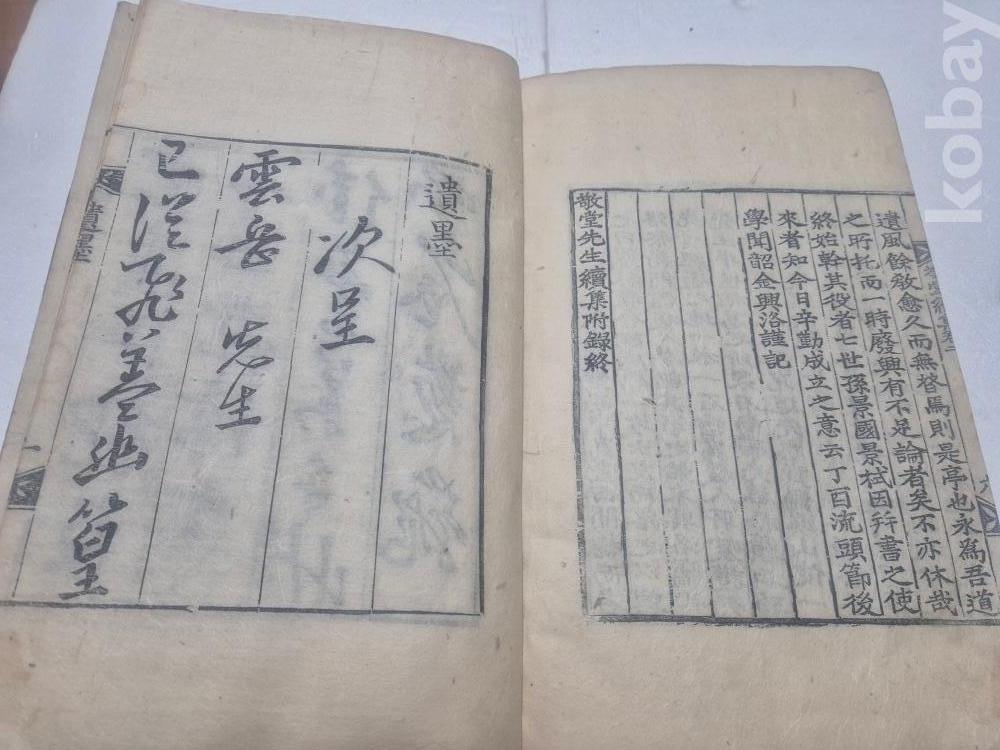 敬堂續集卷二
九
遺風餘敎愈久而無替焉則是亭也永爲吾道
之所托而一時廢興有不足論者矣不亦休哉
終始幹其役者七世孫景國景栻因幷書之使
來者知今日辛勤成立之意云丁酉流頭節後
學聞韶金興洛謹記
敬堂先生續集附錄終
遺墨
次呈
雲岳 先生
已從飛蓋幽篁
遺墨
一
kobay